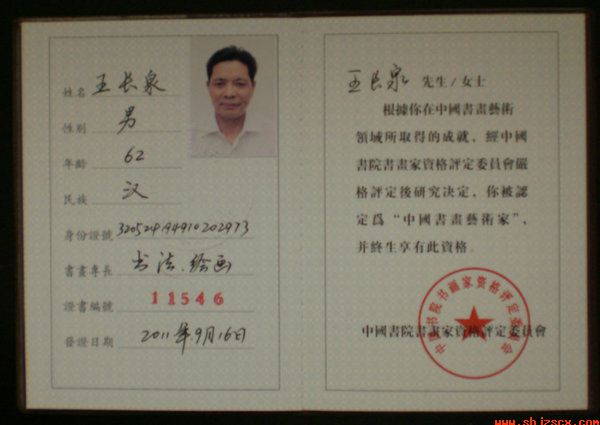 姓名 王长泉
性别 男
年龄 62
民族 汉
身份證號 320524194910202973
書畫專長 书法.绘画
證書編號 11546
發證日期 2011年9月16日
王长泉 先生/女士
根據你在中國書畫藝術
領域所取得的成就，經中國
書院書畫家資格評定委員會嚴
格評定後研究决定，你被認
定爲“中國書畫藝術家”，
并終生享有此資格。
中國書院書畫家資格評定委員會
中國书院书画家资格评定委员会
www.shjzscx.com